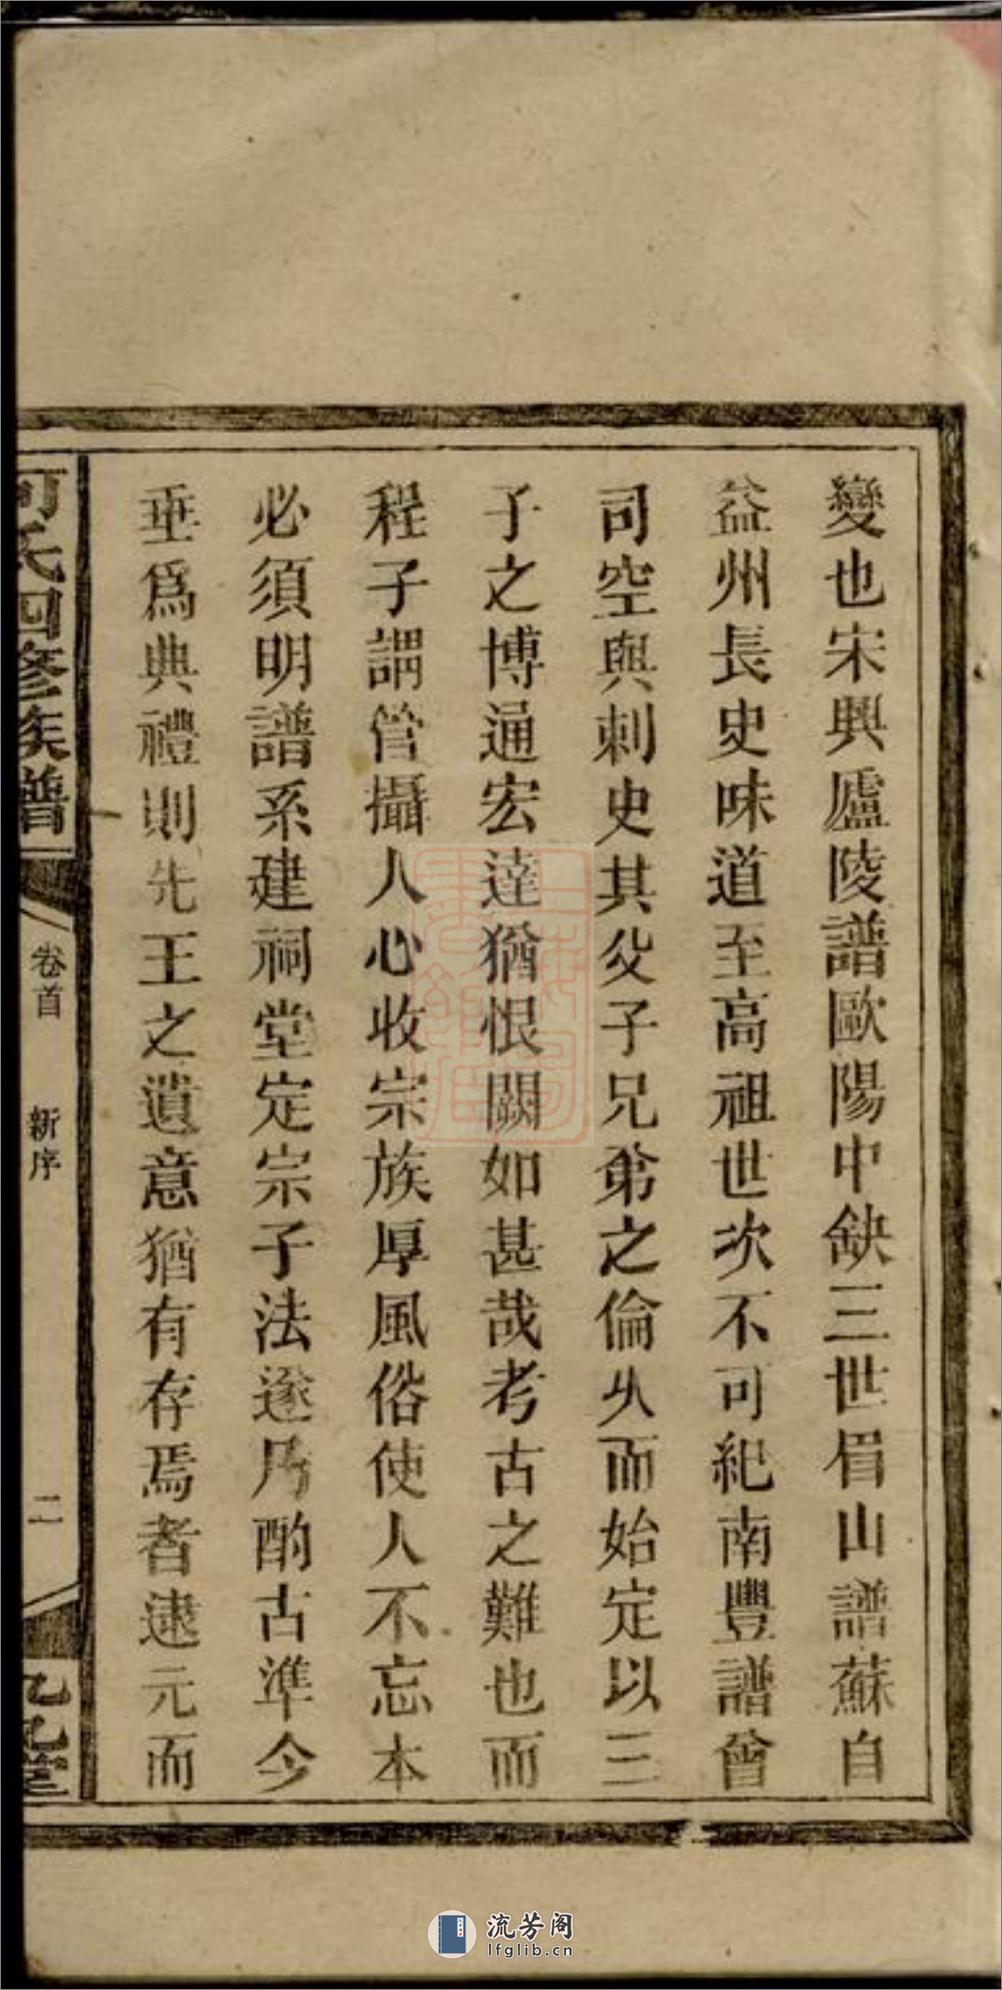 變也宋興廬陵譜歐陽中缺三世眉山譜蘇自
益州長史味道至高祖世次不可紀南豐譜曾
司空與刺史其父子兄弟之倫久而始定以三
子之博通宏達猶恨闕如甚哉考古之難也而
程子謂管攝人心收宗族厚風俗使人不忘本
必須明譜系建祠堂定宗子法遂乃酌古準今
垂爲典禮則先王之遺意猶有存焉者逮元而
何氏四修族譜
卷首
新序
二
流芳阁
lfglib.cn